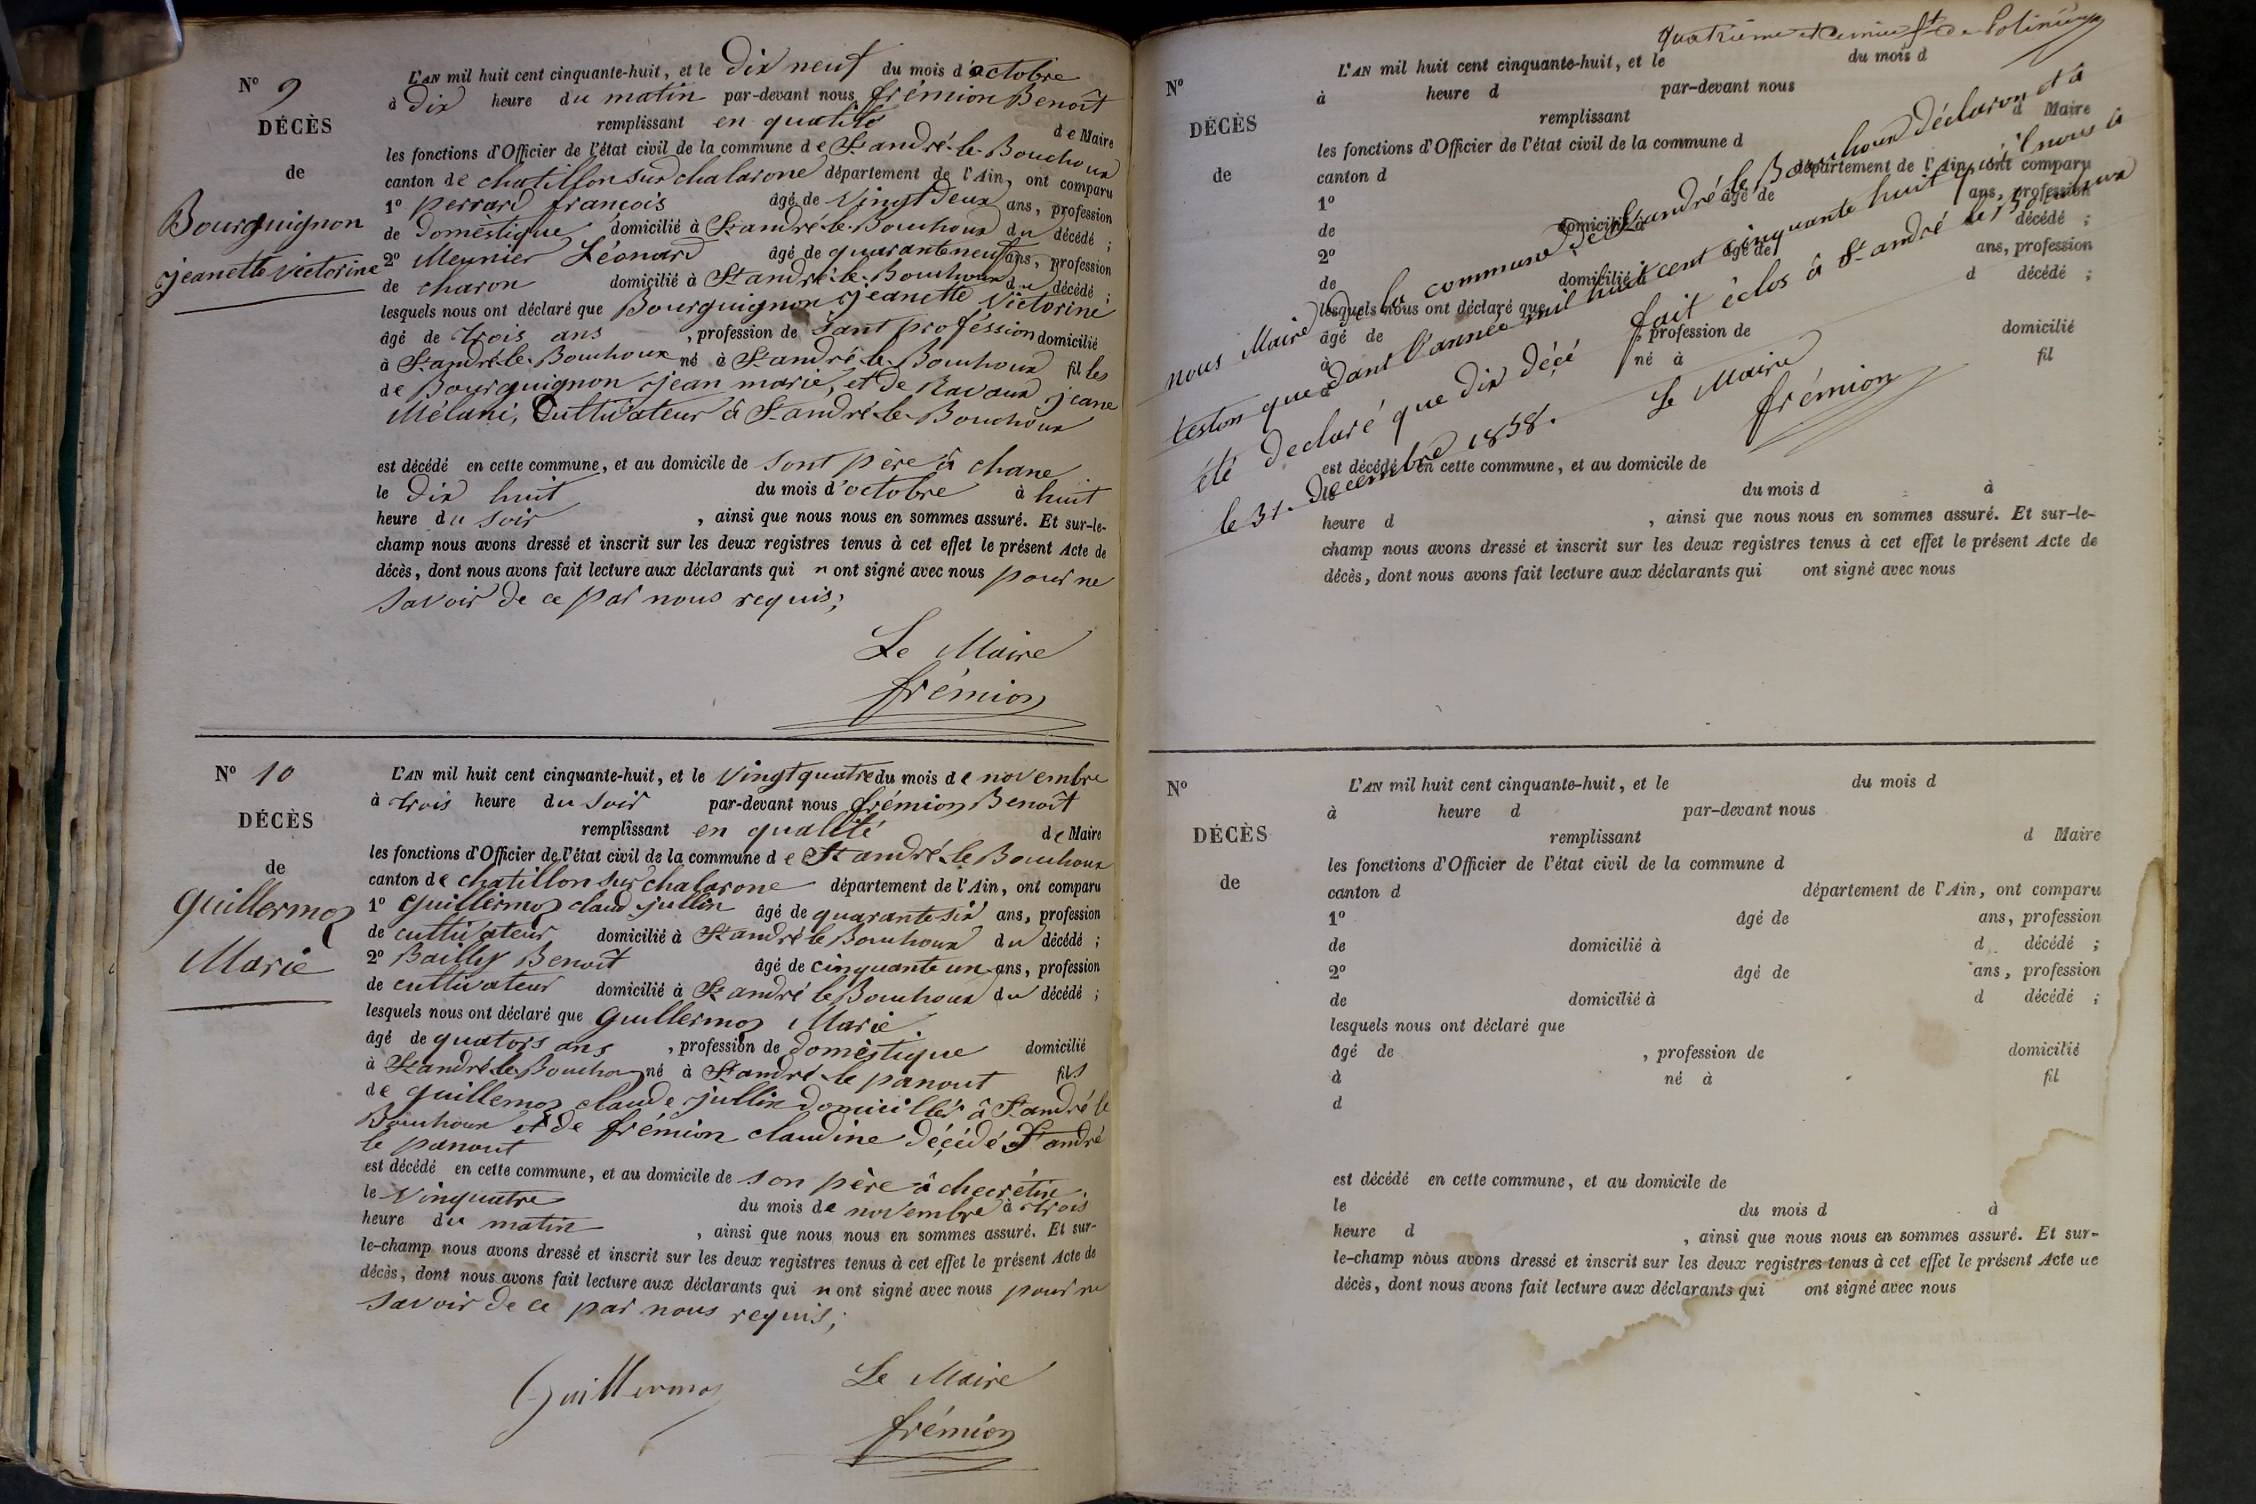 N° 9
DÉCÈS
de
Bourguignon
jeanette victorine
L'AN mil huit cent cinquante-huit, et le Dix neuf du mois d'octobre
à Dix heure du matin par-devant nous frémion Benoît
remplissant en qualité de Maire
les fonctions d'Officier de l'état civil de la commune de St andré-le-Bouchoux
canton de chatillon sur chalarone département de l'Ain, ont comparu
1° perrard françois âgé de Vingt Deux ans, profession
de Domèstique domicilié à St andré-le-Bouchoux du décédé ;
2° Meunier Léonard âgé de quarante neuf ans, profession
de charon domicilié à St andré-le-Bouchoux du décédé ;
lesquels nous ont déclaré que Bourguignon jeanette Victorine
âgé de trois ans , profession de sant proféssion domicilié
à St andré-le-Bouchoux né à St andré-le-Bouchoux fil les
de Bourguignon jean marie, et de Ravaux jeane
Mélani, Cultivateur à St andré-le-Bouchoux
est décédé en cette commune, et au domicile de sont père à chane
le Dix huit du mois d'octobre à huit
heure du soir , ainsi que nous nous en sommes assuré. Et sur-le-
champ nous avons dressé et inscrit sur les deux registres tenus à cet effet le présent Acte de
décès, dont nous avons fait lecture aux déclarants qui n ont signé avec nous pour ne
savoir de ce par nous requis;
Le Maire
frémion
N° 10
DÉCÈS
de
Guillermoz
Marie
L'AN mil huit cent cinquante-huit, et le Vingt quatre du mois de novembre
à trois heure du soir par-devant nous frémion Benoît
remplissant en qualité de Maire
les fonctions d'Officier de l'état civil de la commune de St andré-le Bouchoux
canton de chatillon sur chalarone département de l'Ain, ont comparu
1° Guillermoz claud jullin âgé de quarante six ans, profession
de cultivateur domicilié à St andré le Bouchoux du décédé ;
2° Bailly Benoît âgé de cinquante un ans, profession
de cultivateur domicilié à St andré le Bouchoux du décédé ;
lesquels nous ont déclaré que Guillermoz Marie
âgé de quators ans , profession de domèstique domicilié
à St andré-le-Boucho né à St andré-le panout fils
de Guillermoz claude jullin domicillér à St andré le
Bouchoux et de frémion claudine Décédé St andré
le panout
est décédé en cette commune, et au domicile de son père à checrétin
le Vinquatre du mois de novembre à trois
heure du matin , ainsi que nous nous en sommes assuré. Et sur-
le-champ nous avons dressé et inscrit sur les deux registres tenus à cet effet le présent Acte de
décès, dont nous avons fait lecture aux déclarants qui n ont signé avec nous pour ne
savoir de ce par nous requis;
Guillermoz
Le Maire
frémion
quatrième et dernier ft de
N°
DÉCÈS
de
L'AN mil huit cent cinquante-huit, et le du mois d
à heure d par-devant nous
remplissant d Maire
les fonctions d'Officier de l'état civil de la commune d
canton d département de l'Ain, ont comparu
1° âgé de ans, profession
de domicilié à décédé ;
2° âgé de ans, profession
de domicilié à d décédé ;
lesquels nous ont déclaré que
âgé de , profession de domicilié
à né à fil
d
nous Maire de la commune de St andré le Bouchoux déclaron et à
teston que dant l'année mil huit cent cinquante huit qu'il nous à
été declaré que dix décé fait éclos à St andré le Bouchoux
le 31 Décembre 1858.
Le Maire
frémion
est décédé en cette commune, et au domicile de
le du mois d à
heure d , ainsi que nous nous en sommes assuré. Et sur-le-
champ nous avons dressé et inscrit sur les deux registres tenus à cet effet le présent Acte de
décès, dont nous avons fait lecture aux déclarants qui ont signé avec nous
N°
DÉCÈS
de
L'AN mil huit cent cinquante-huit, et le du mois d
à heure d par-devant nous
remplissant d Maire
les fonctions d'Officier de l'état civil de la commune d
canton d département de l'Ain, ont comparu
1° âgé de ans, profession
de domicilié à d décédé ;
2° âgé de ans, profession
de domicilié à d décédé ;
lesquels nous ont déclaré que
âgé de , profession de domicilié
à né à fil
d
est décédé en cette commune, et au domicile de
le du mois d à
heure d , ainsi que nous nous en sommes assuré. Et sur-
le-champ nous avons dressé et inscrit sur les deux registres tenus à cet effet le présent Acte de
décès, dont nous avons fait lecture aux déclarants qui ont signé avec nous